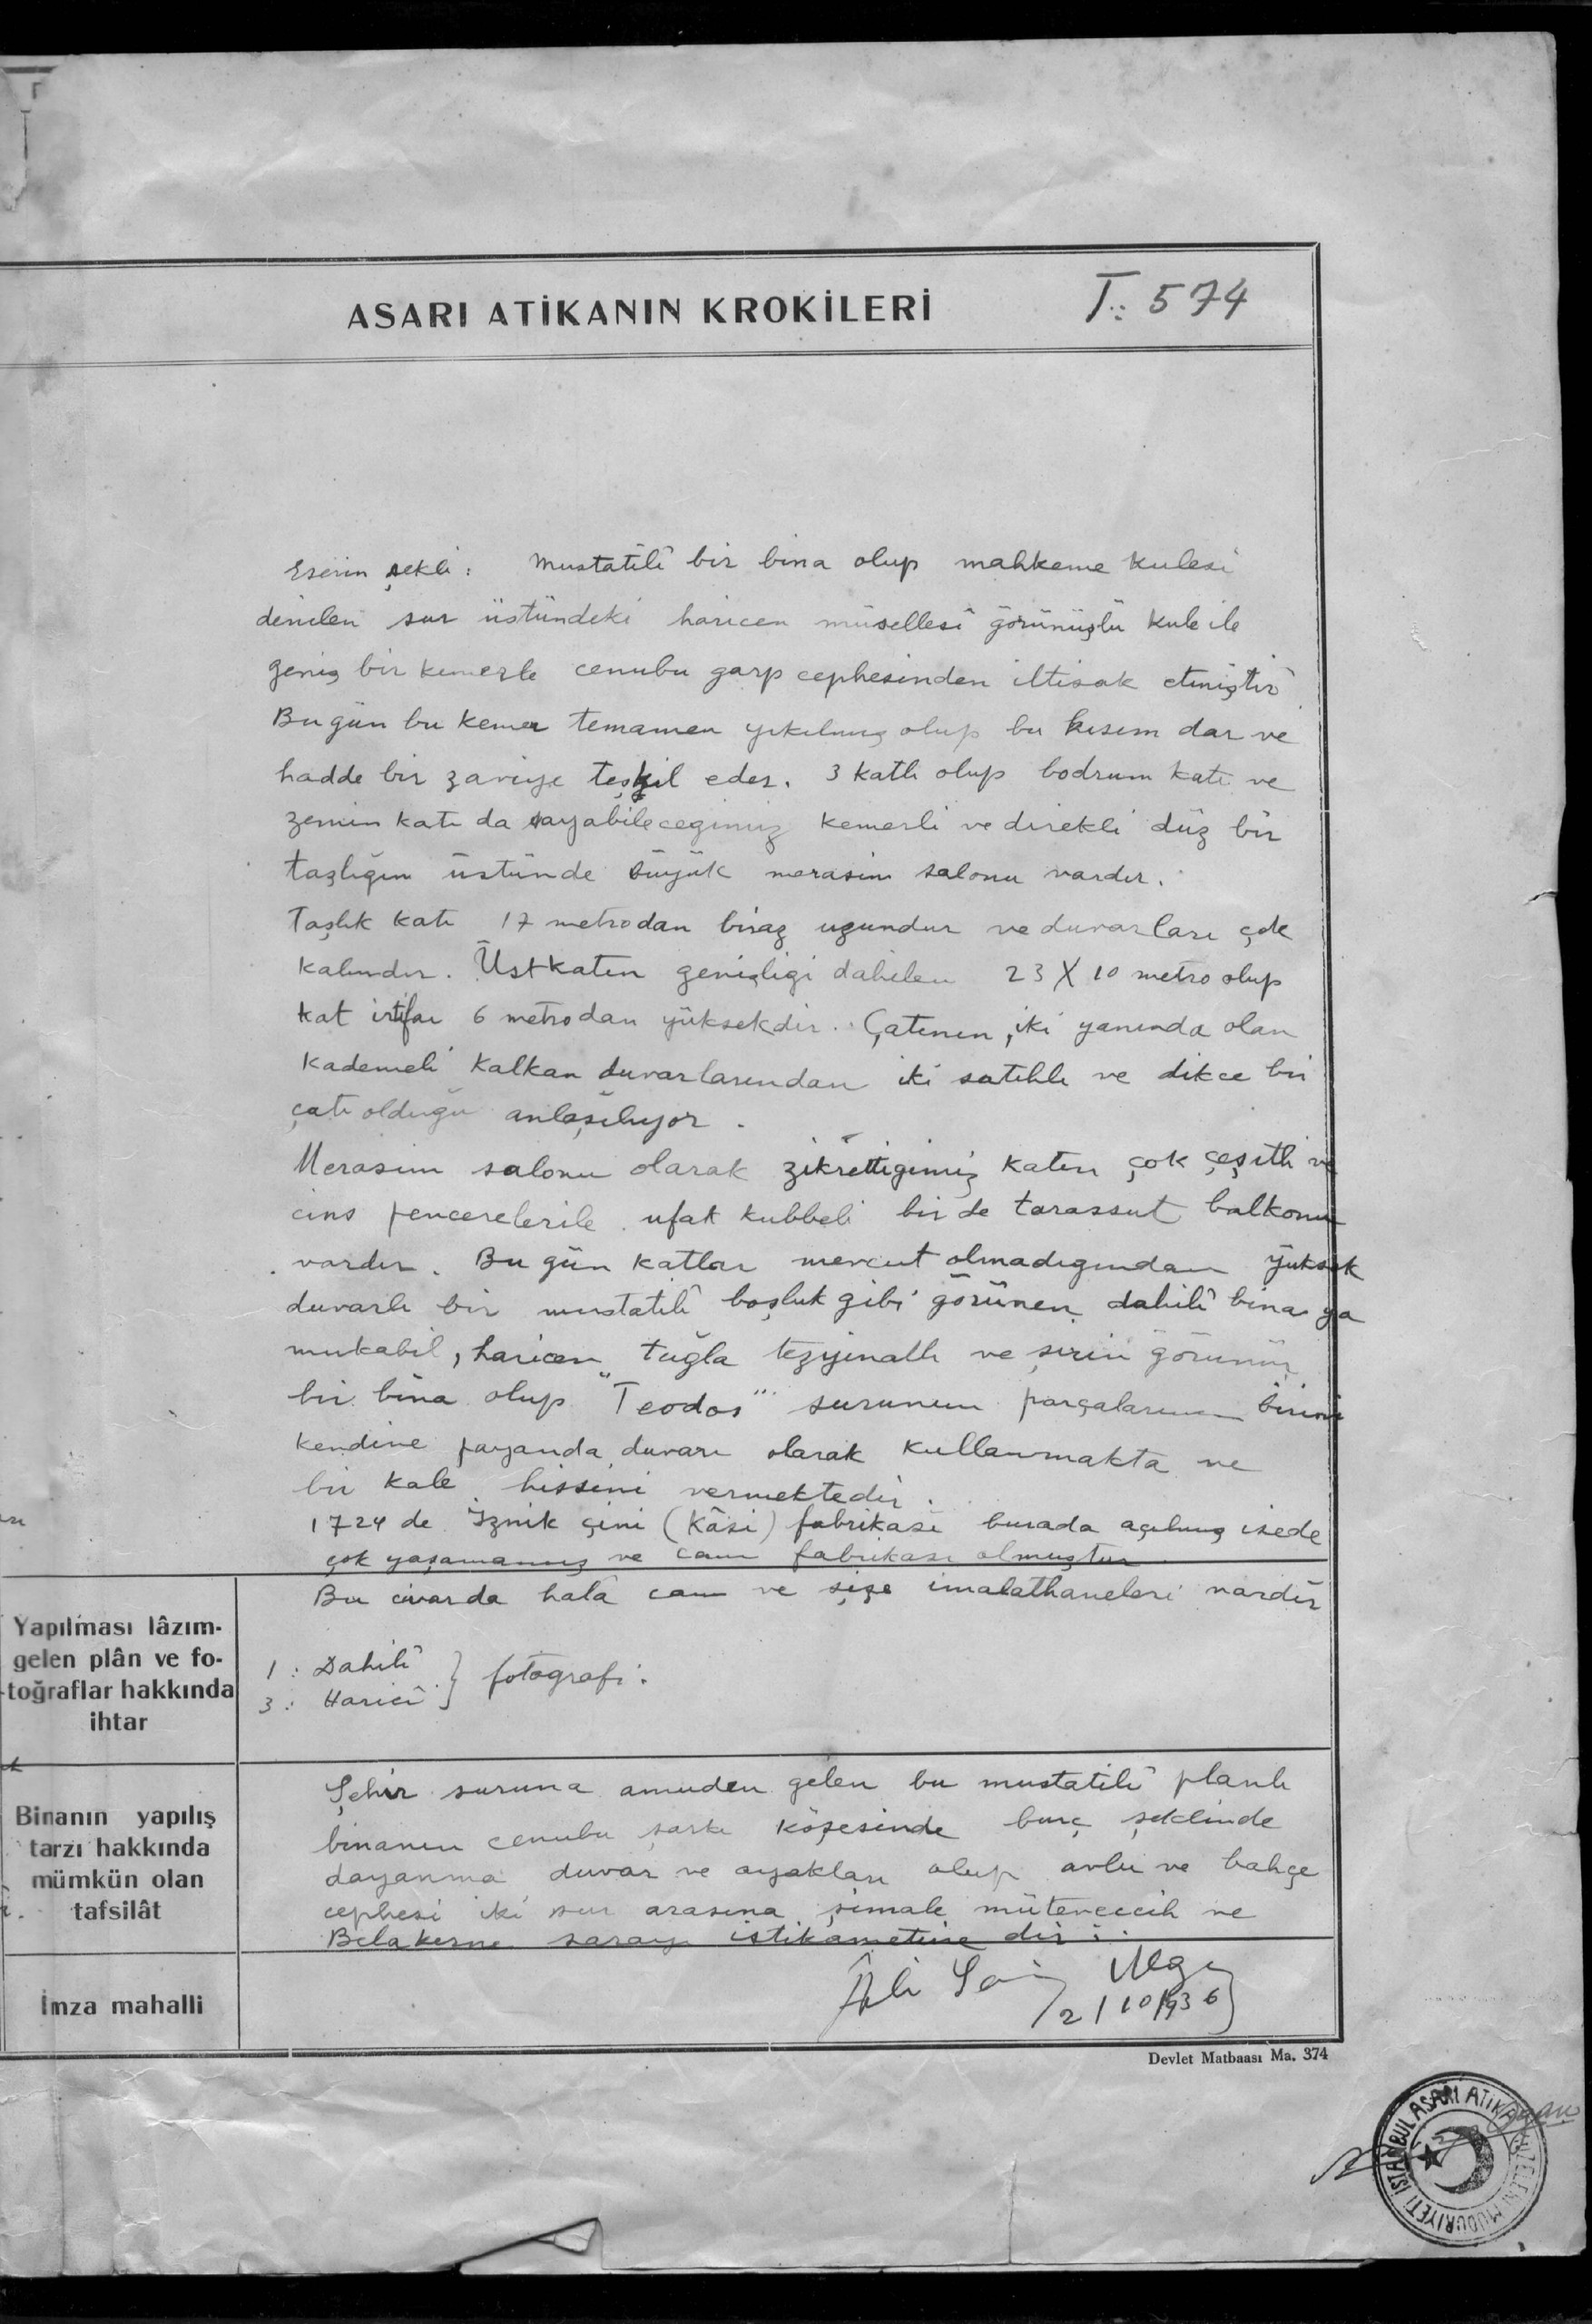 ASARI ATİKANIN KROKİLERİ
T.: 574
Eserin şekli: Mustatilî bir bina olup mahkeme kulesi
denilen sur üstündeki haricen müsellesî görünüşlü kule ile
geniş bir kemerle cenubu garp cephesinden iltisak etmiştir
Bugün bu kemer temamen yıkılmış olup bu kısım dar ve
hadde bir zaviye teşkil eder. 3 katlı olup bodrum katı ve
zemin katı da sayabileceğimiz kemerli ve direkli düz bir
taşlığın üstünde büyük merasim salonu vardır.
Taşlık katı 17 metrodan biraz uzundur ve duvarları çok
kalındır. Üst katın genişligi dahilen 23 X 10 metro olup
kat irtifaı 6 metrodan yüksekdir. Çatının iki yanında olan
kademeli kalkan duvarlarından iki satıhlı ve dikce bir
çatı olduğu anlaşılıyor.
Merasim salonu olarak zikrettigimiz katın çok çeşitli ve
cins pencerelerile ufak kubbeli bir de tarassut balkonu
vardır. Bu gün katlar mevcut olmadıgından yüksek
duvarlı bir mustatilî boşluk gibi görünen dahilî bina ya
mukabil, haricen tuğla tezyinatlı ve şirin görünür
bir bina olup "Teodos" surunun parçalarının birini
kendine payanda duvarı olarak kullanmakta ve
bir kale hissini vermektedir.
1724 de İznik çini (Kâsi) fabrikası burada açılmış isede
çok yaşamamış ve cam fabrikası olmuştur
Bu civarda halâ cam ve şişe imalathaneleri vardır
Yapılması lâzım-
gelen plân ve fo-
toğraflar hakkında
ihtar
1: Dahilî
3: Haricî } fotografi.
Binanın yapılış
tarzı hakkında
mümkün olan
tafsilât
Şehir suruna amuden gelen bu mustatilî planlı
binanın cenubu şarkı köşesinde burç şeklinde
dayanma duvar ve ayakları olup avlu ve bahçe
cephesi iki sur arasına şimale müteveccih ve
Belakerne sarayı istikametine dir.
İmza mahalli
Âli
2/10/936
Devlet Matbaası Ma. 374
İSTANBUL ASARI ATİKA MÜZELERİ MÜDÜRİYETİ